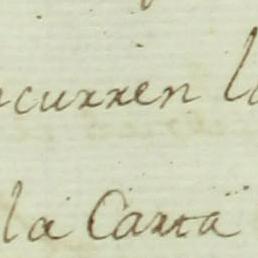 ncurren l
la Carta